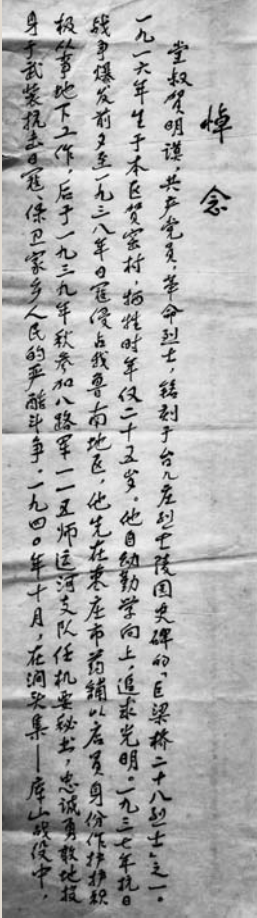 悼念
堂叔贺明谟,共产党员,革命烈士,铭刻于台儿庄烈士陵园史碑的“巨梁桥二十八烈士”之一。
一九一六年生于本区贺窑村,牺牲时年仅二十五岁。他自幼勤学向上,追求光明。一九三七年抗日
战争爆发前夕至一九三八年日寇侵占我鲁南地区,他先在枣庄市药铺以店员身份作掩护积
极从事地下工作,后于一九三九年秋参加八路军一一五师运河支队任机要秘书,忠诚勇敢地投
身于武装抗击日寇、保卫家乡人民的严酷斗争。一九四〇年十月,在涧头集——库山战役中,